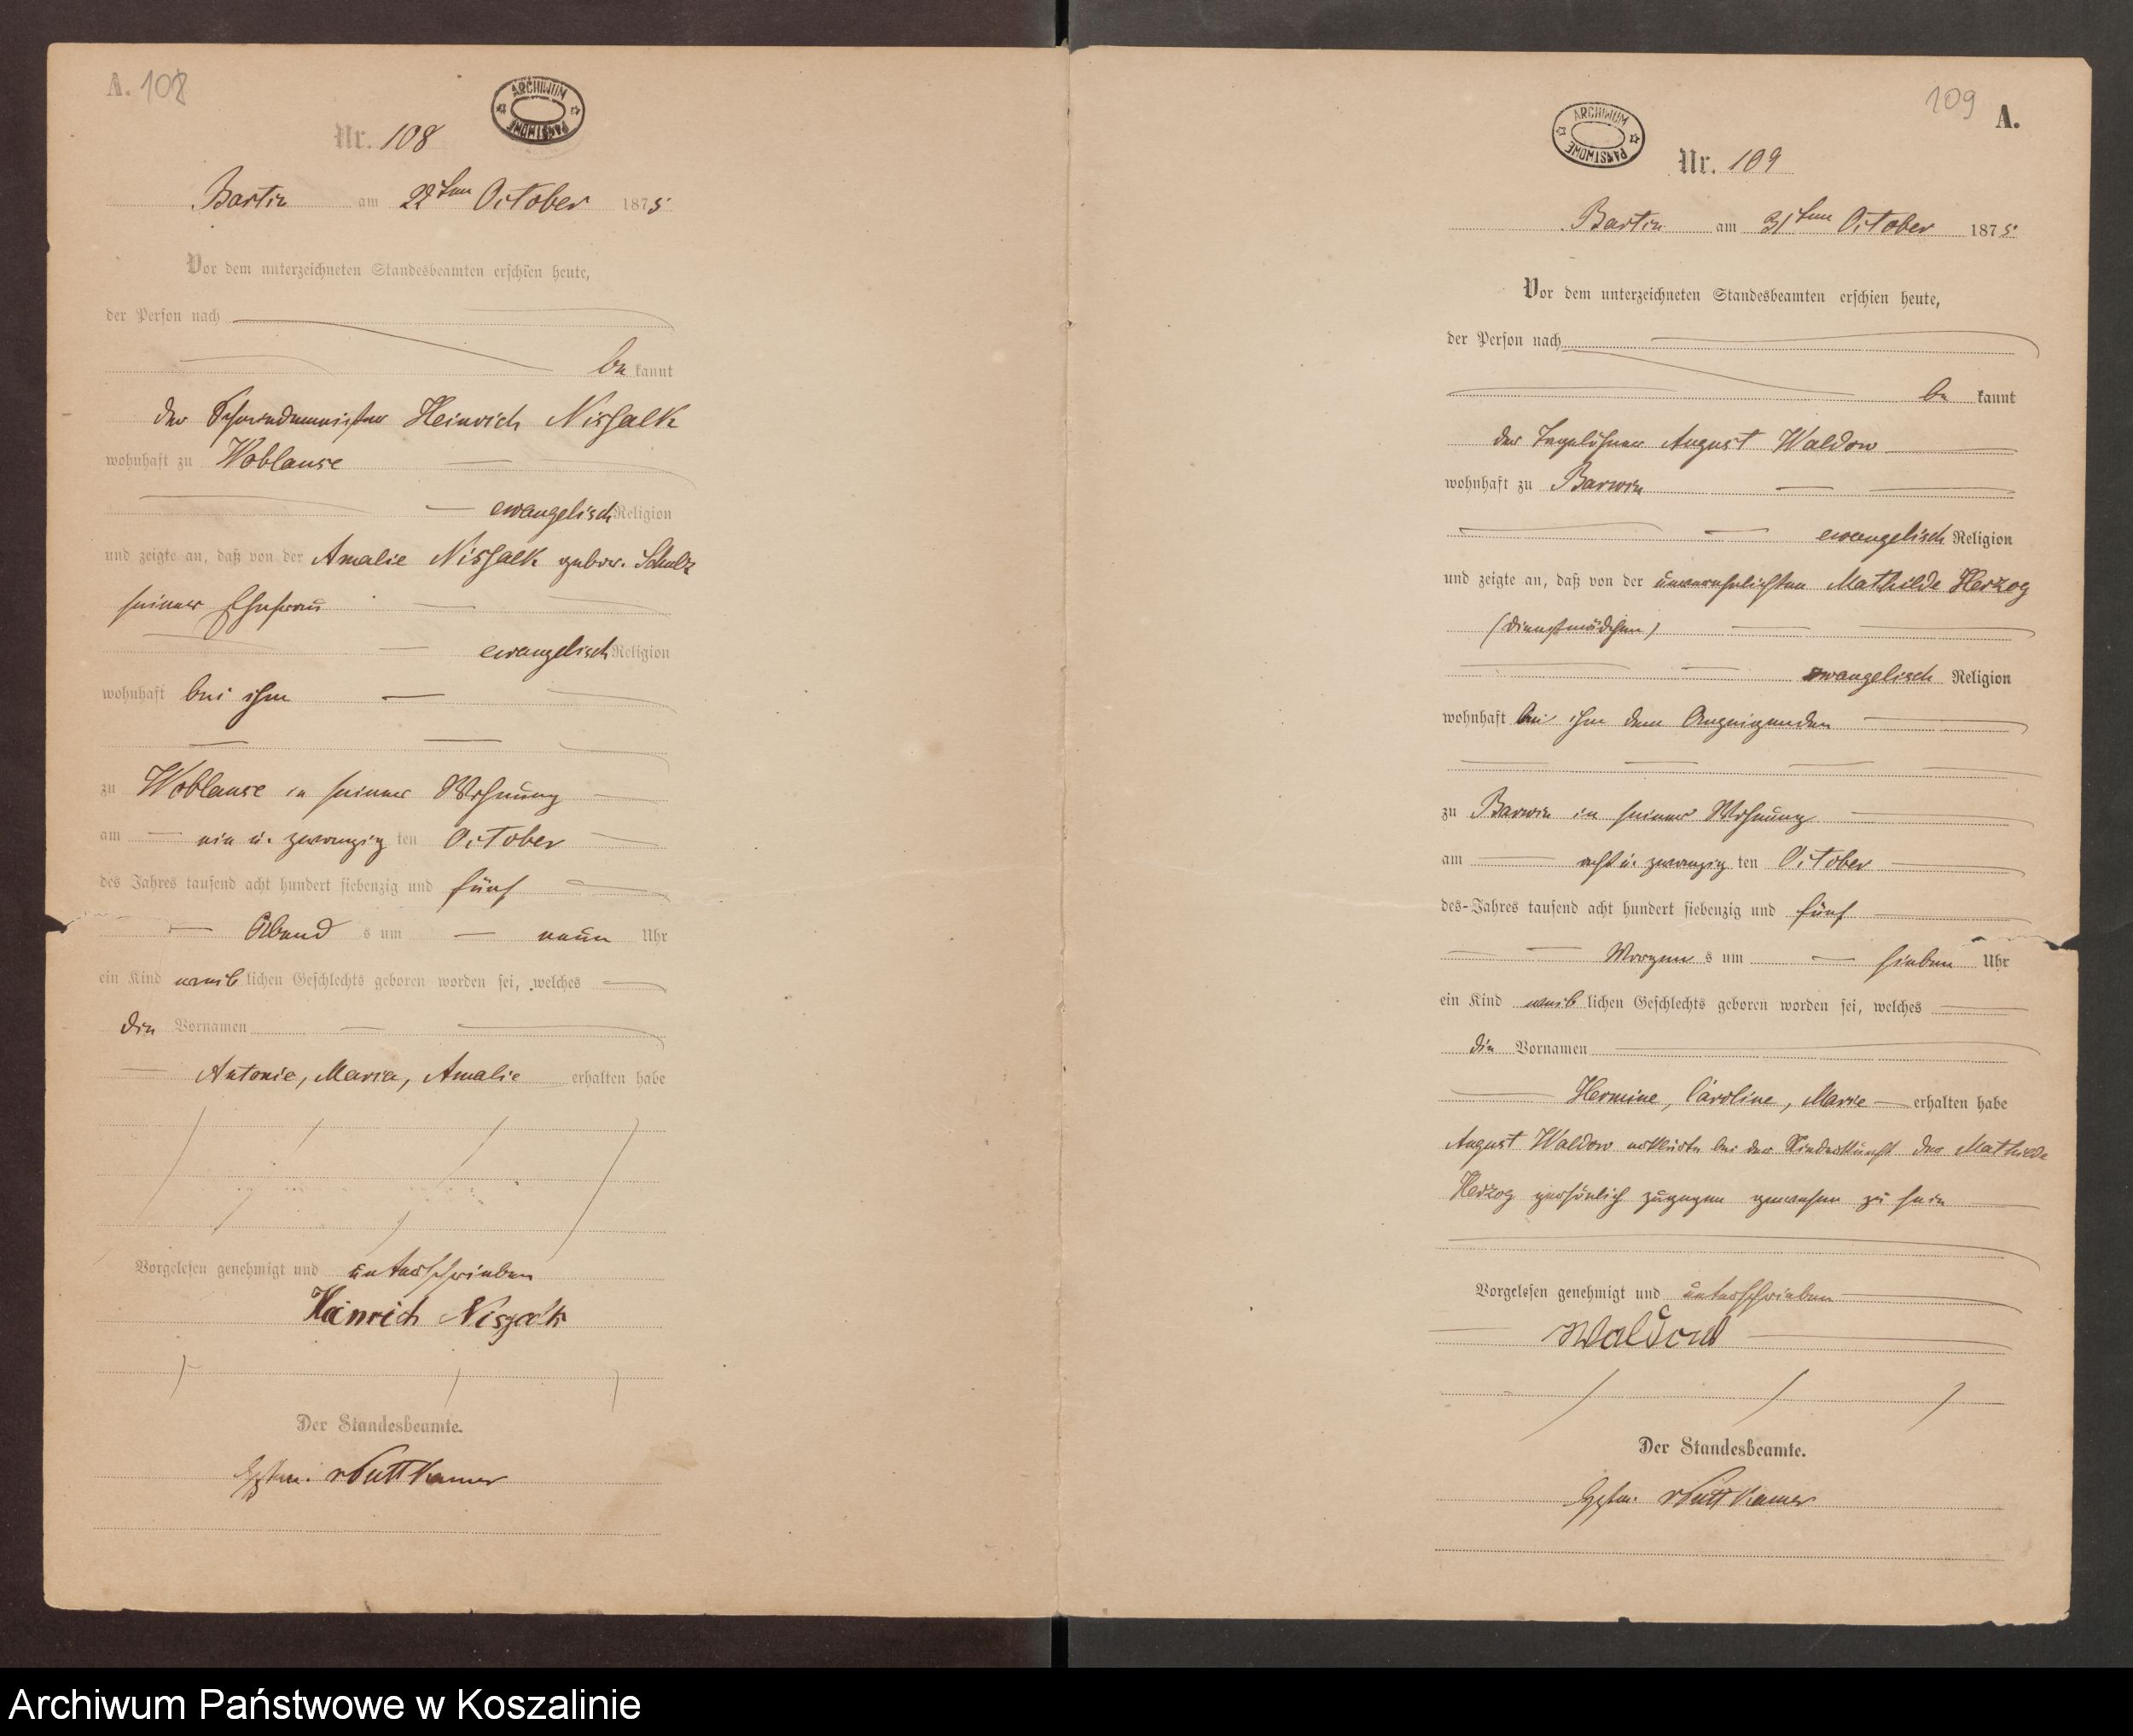 A. 108
ARCHIWUM PAŃSTWOWE
Nr. 108
Bartin am 22ten October 1875
Vor dem unterzeichneten Standesbeamten erschien heute,
der Person nach
be kannt
der Heinrich Nißalk
wohnhaft zu Woblanse
evangelisch Religion
und zeigte an, daß von der Amalie Nißalk gebor. Schulz
seiner Ehefrau
evangelisch Religion
wohnhaft bei ihm
zu Woblanse in seiner Wohnung
am ein u. zwanzig ten October
des Jahres tausend acht hundert siebenzig und fünf
Abend s um neun Uhr
ein Kind weib lichen Geschlechts geboren worden sei, welches
die Vornamen
Antonie, Maria, Amalie erhalten habe
Vorgelesen genehmigt und unterschrieben
Heinrich
Der Standesbeamte.
vPuttkamer
109 A.
ARCHIWUM PAŃSTWOWE
Nr. 109
Bartin am 31ten October 1875
Vor dem unterzeichneten Standesbeamten erschien heute,
der Person nach
be kannt
der Tagelöhner August Waldow
wohnhaft zu Barwin
evangelisch Religion
und zeigte an, daß von der unverehelichten Mathilde Herzog
(Dienstmädchen)
evangelisch Religion
wohnhaft bei ihm dem Anzeigenden
zu Barwin in seiner Wohnung
am acht u. zwanzig ten October
des Jahres tausend acht hundert siebenzig und fünf
Morgen s um sieben Uhr
ein Kind weib lichen Geschlechts geboren worden sei, welches
die Vornamen
Hermine, Caroline, Marie erhalten habe
August Waldow erklärte bei der Niederkunft der Mathilde
Herzog persönlich zugegen gewesen zu sein
Vorgelesen genehmigt und unterschrieben
Waldow
Der Standesbeamte.
vPuttkamer
Archiwum Państwowe w Koszalinie